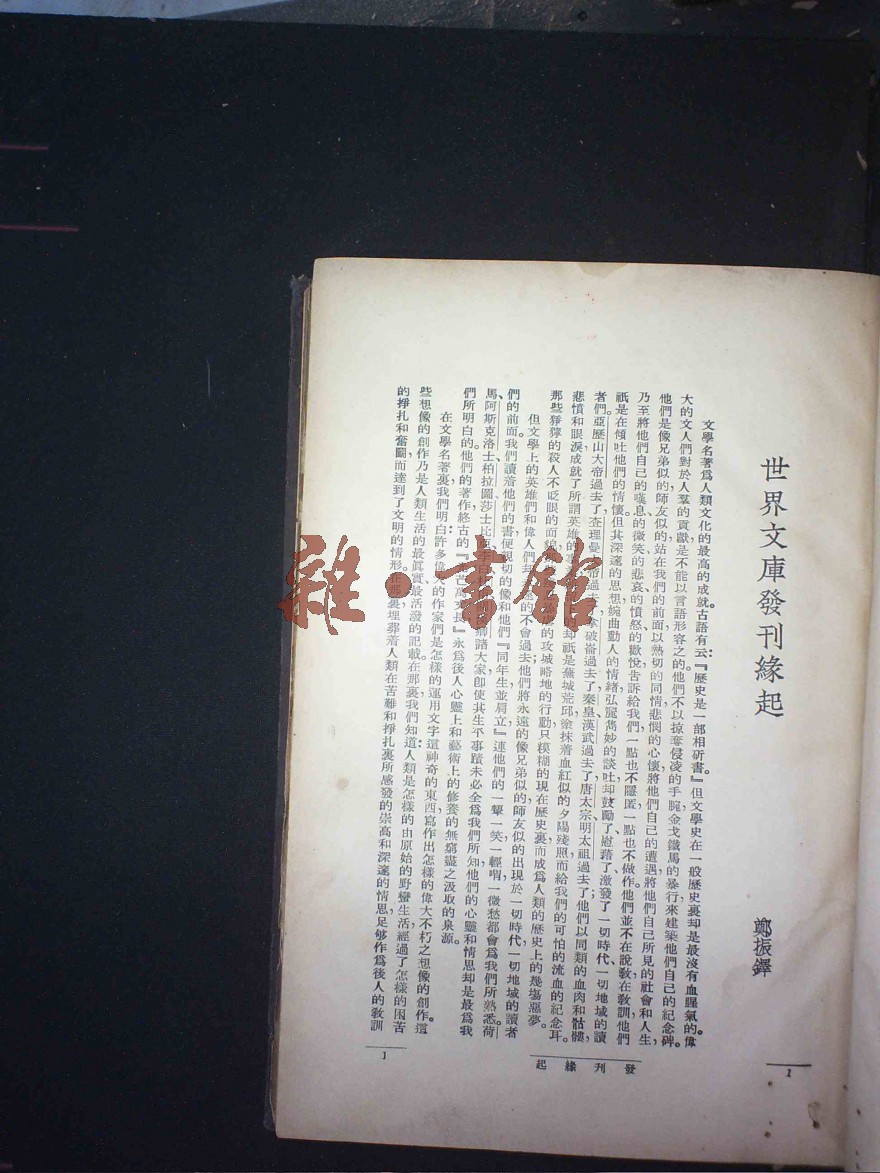 世界文庫發刊緣起
鄭振鐸
文學名著爲人類文化的最高的成就。古語有云：『歷史是一部相斫書。』但文學史在一般歷史裏却是最沒有血腥氣的。偉
大的文人們對於人羣的貢獻是不能以言語形容之的。他們不以掠奪侵凌的手腕，金戈鐵馬的暴行來建築他們自己的紀念碑。
他們是像兄弟似的，師友似的，站在我們的前面，以熱切的同情，悲憫的心懷，將他們自己的遭遇，將他們自己所見的社會和人生，
乃至將他們自己的嘆息的，微笑的，悲哀的，憤怒的，歡悅告訴給我們，一點也不隱匿，一點也不做作。他們並不在說教，在教訓，他們
祇是在傾吐他們的情懷。但其深邃的思想，婉曲動人的情緒，弘麗雋妙的談吐却鼓勵了、慰藉了、激發了一切時代、一切地域的讀
者們。亞歷山大帝過去了，查理曼帝過去，拿破崙過去了，秦皇、漢武過去了，唐太宗、明太祖過去了；他們以同類的血肉和骷髏，
悲憤和眼淚成就了所謂英雄的却祇是蕪城荒邱，塗抹着血紅似的夕陽殘照，而給我們的可怕的流血的紀念耳。
那些猙獰的殺人不眨眼的面貌的攻城略地的行動，只糢糊的現在歷史裏，而成爲人類的歷史上的幾塲惡夢。
但文學上的英雄們和偉人們却的不會過去；他們將永遠的像兄弟似的，師友似的出現於一切時代、一切地域的讀者
們的前面。我們讀着他們的書，便親切的像和他們『同年生，並肩立，』連他們的一顰一笑，一輕喟，一微愁都會爲我們所熟悉。荷
馬、阿斯克洛士、柏拉圖、莎士比亞、李白、杜諸大家，卽使其生平事蹟未必全爲我們所知，他們的心靈和情思却是最爲我
們所明白的。他們的著作終古的『光芒萬丈長，』永爲後人心靈上和藝術上的修養的無窮盡之汲取的泉源。
在文學名著裏，我們明白：許多偉大的作家們是怎樣的運用文字這神奇的東西，寫作出怎樣的偉大不朽之想像的創作。這
些想像的創作，乃是人類生活的最眞實、最活潑的記載。在那裏，我們知道：人類是怎樣的由原始的野蠻生活，經過了怎樣的困苦
的掙扎和奮鬬，而達到了文明的情形。在那裏，埋葬着人類在苦難和掙扎裏所感發的崇高和深邃的情思，足够作爲後人的教訓
發刊緣起
1
1
雜·書館